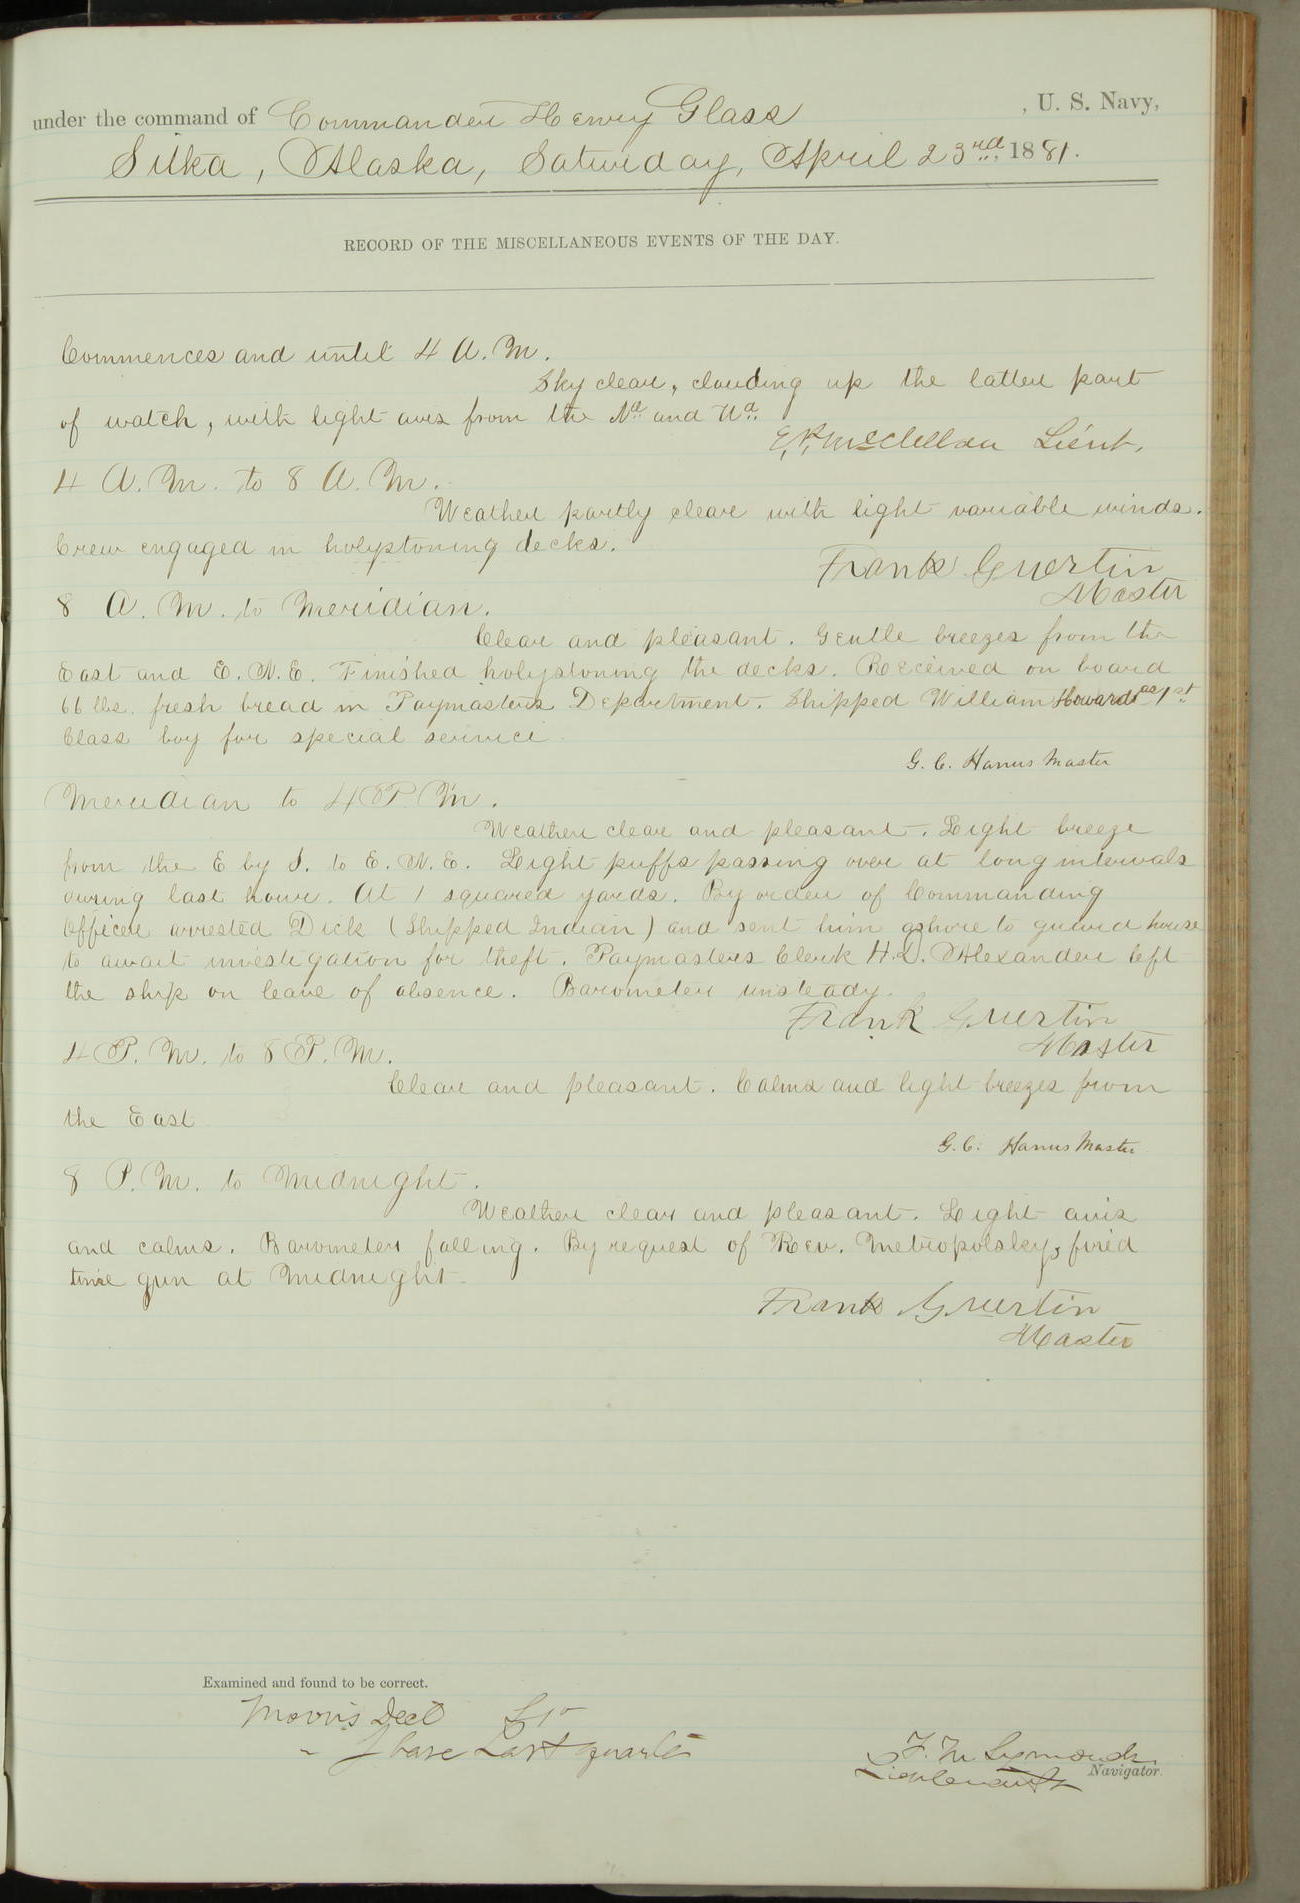 under the command of Commander Henry Glass , U. S. Navy,
Sitka, Alaska, Saturday, April 23rd, 1881.
RECORD OF THE MISCELLANEOUS EVENTS OF THE DAY.
Commences and until 4 A.M.
Sky clear, clouding up the latter part
of watch, with light airs from the Nd and Wd.
E.K. McClellan Lieut.
4 A.M. to 8 A.M.
Weather partly clear with light variable winds.
Crew engaged in holystoning decks.
Frank Guertin
Master
8 A.M. to Meridian.
Clear and pleasant. Gentle breezes from the
East and E.N.E. Finished holystoning the decks. Received on board
66 lbs. fresh bread in Paymasters Department. Shipped William Howard as 1st
Class boy for special service
G. C. Hanus Master
Meridian to 4 P.M.
Weather clear and pleasant. Light breeze
from the E by S. to E.N.E. Light puffs passing over at long intervals
during last hour. At 1 squared yards. By order of Commanding
Officer arrested Dick (Shipped Indian) and sent him ashore to guard house
to await investigation for theft. Paymasters Clerk H.D. Alexander left
the ship on leave of absence. Barometer unsteady.
Frank Guertin
Master
4 P.M. to 8 P.M.
Clear and pleasant. Calms and light breezes from
the East
G. C. Hanus Master
8 P.M. to Midnight.
Weather clear and pleasant. Light airs
and calms. Barometer falling. By request of Rev. Metropolsky, fired
time gun at Midnight.
Frank Guertin
Master
Examined and found to be correct.
Moon's Decl
" Phase Last quarter
F. M. Symonds
Lieutenant Navigator.